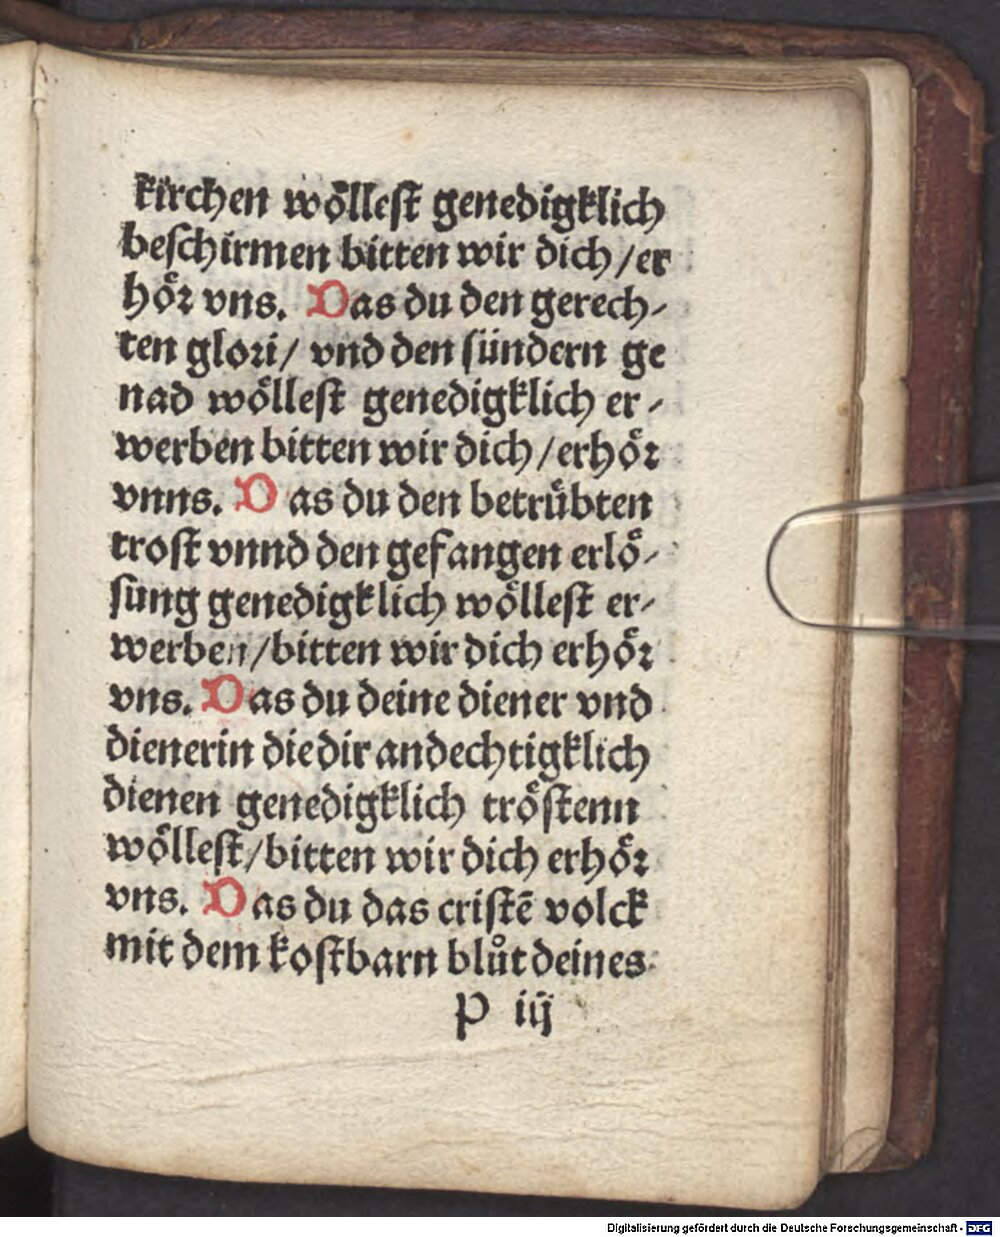 kirchen wöllest genedigklich
beschirmen bitten wir dich / er
hör vns. Das du den gerech-
ten glori / vnd den sündern ge
nad wöllest genedigklich er-
werben bitten wir dich / erhör
vnns. Das du den betrübten
trost vnnd den gefangen erlö-
sung genedigklich wöllest er-
werben / bitten wir dich erhör
vns. Das du deine diener vnd
dienerin die dir andechtigklich
dienen genedigklich tröstenn
wöllest / bitten wir dich erhör
vns. Das du das cristē volck
mit dem kostbarn blůt deines
P iij
Digitalisierung gefördert durch die Deutsche Forschungsgemeinschaft - DFG